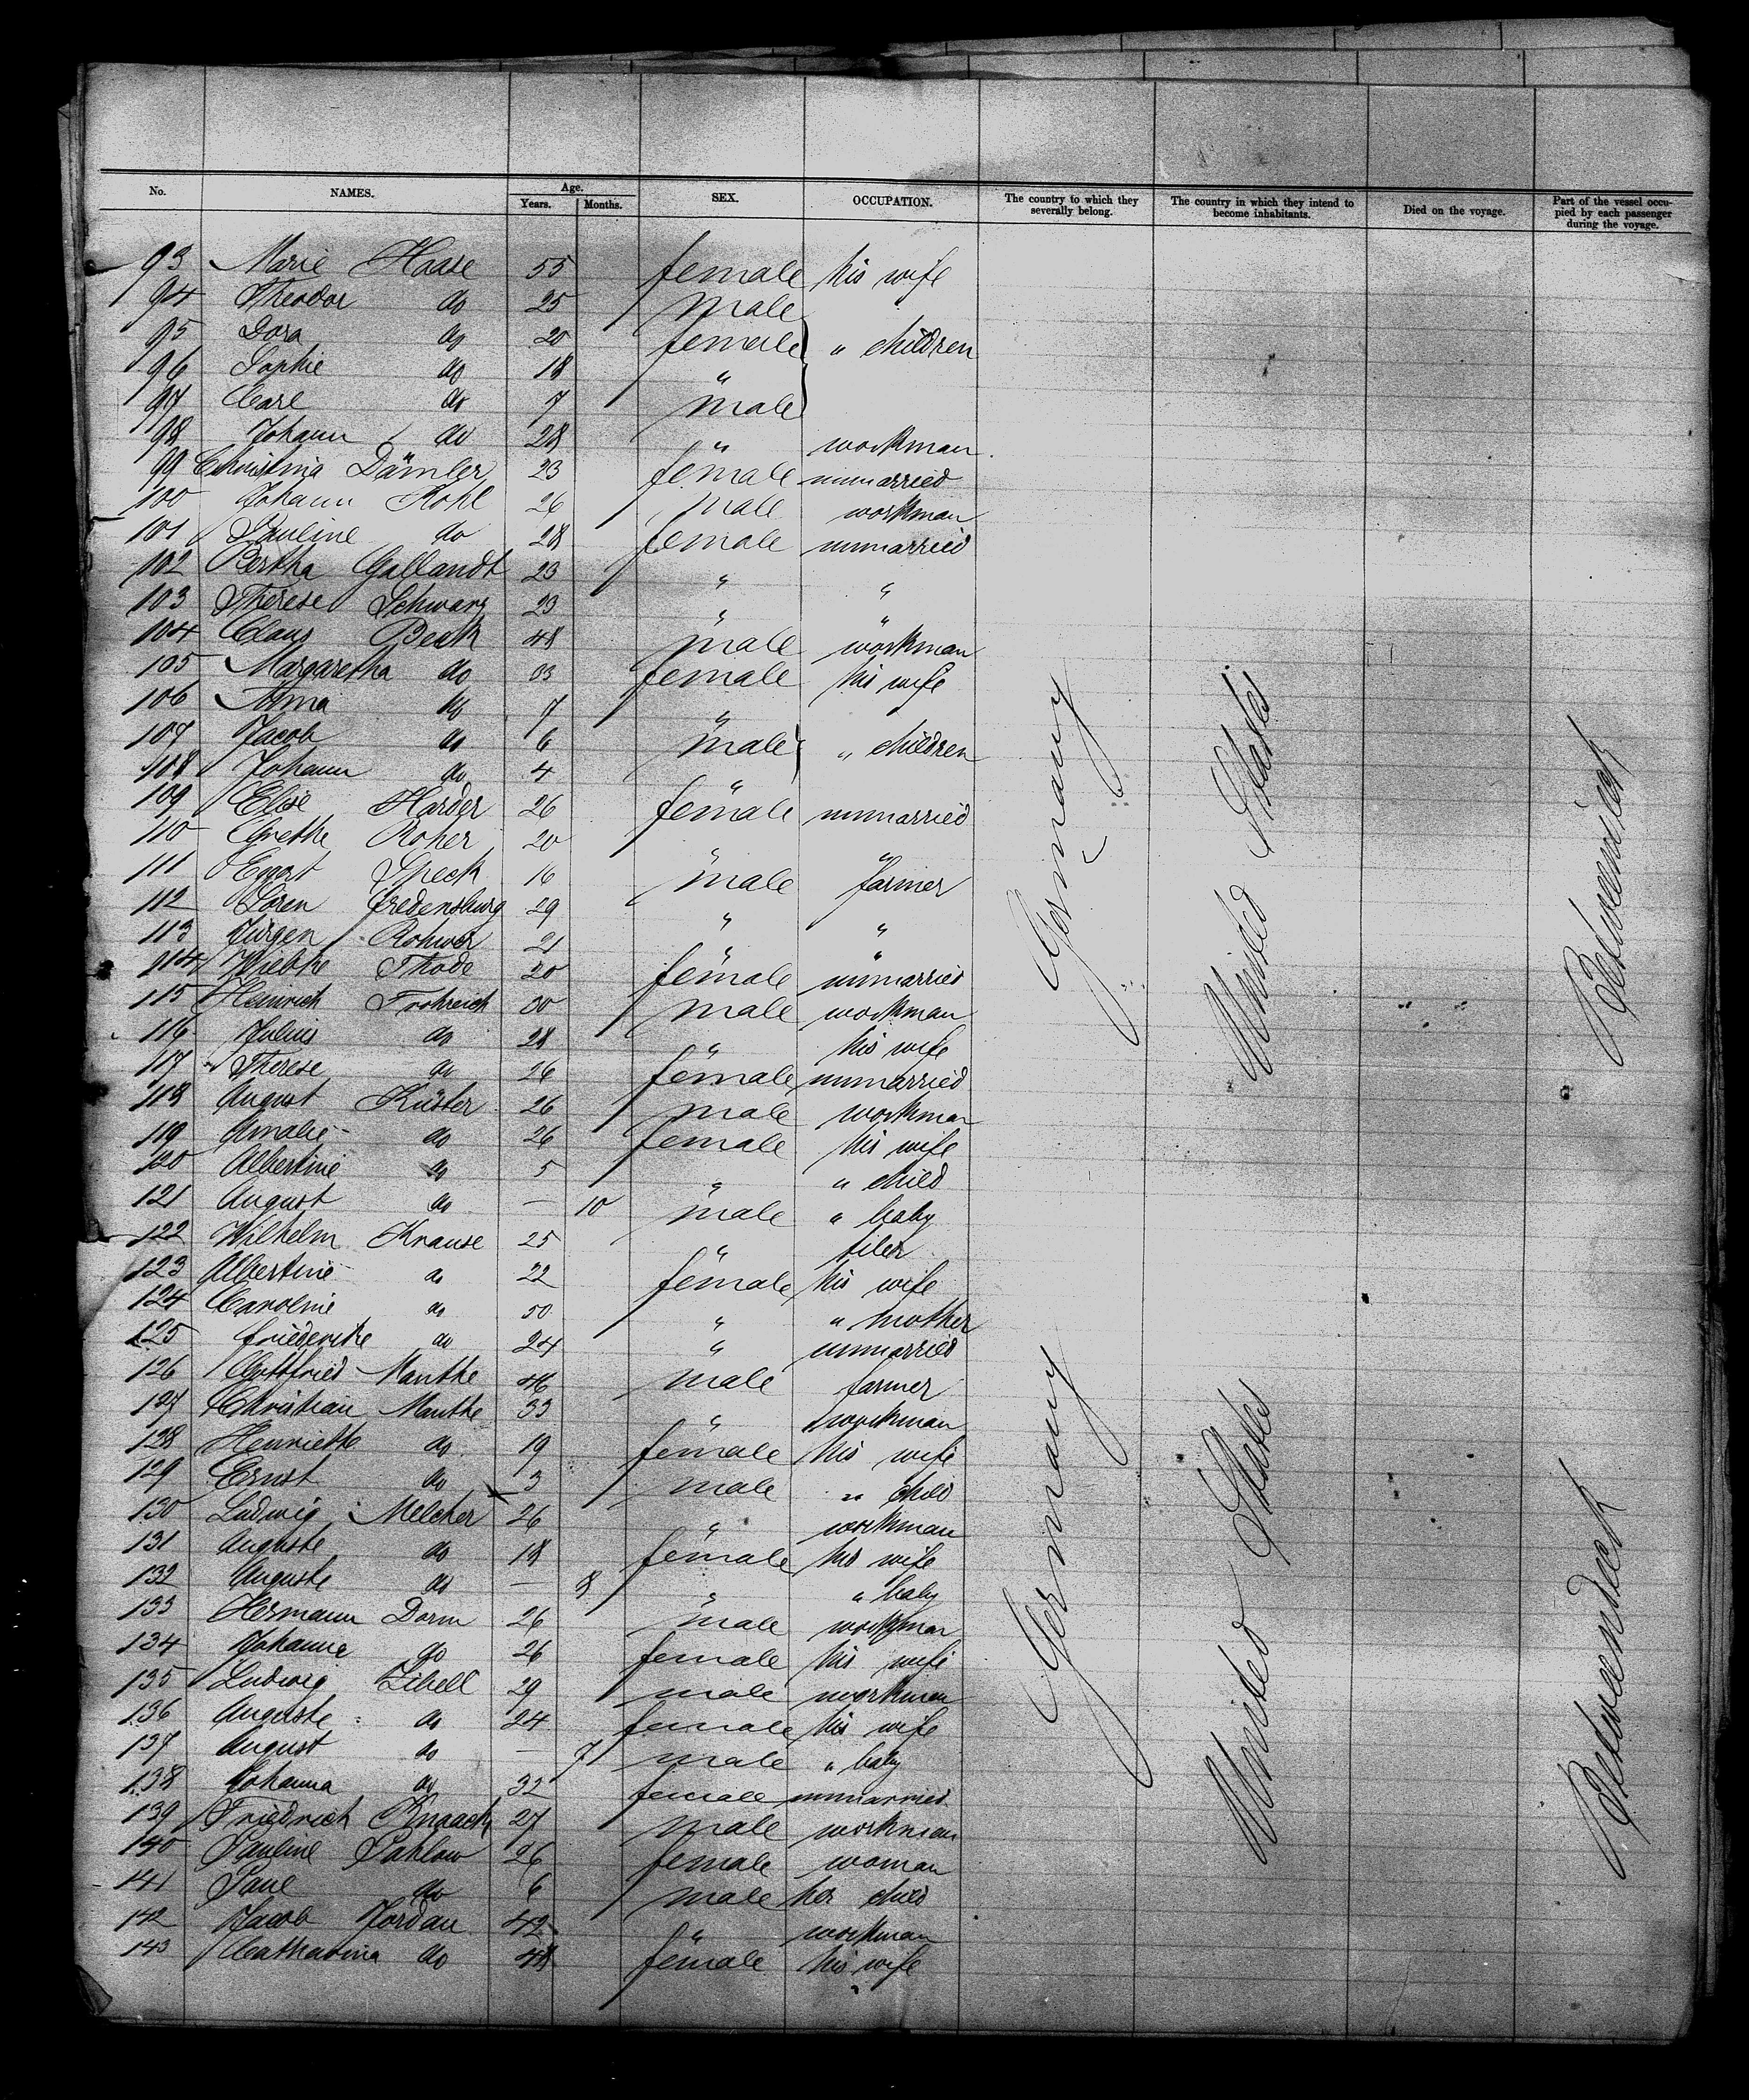 No. NAMES. Age. Years. Months. SEX. OCCUPATION. The country to which they severally belong. The country in which they intend to become inhabitants. Died on the voyage. Part of the vessel occupied by each passenger during the voyage.
93 Marie Haase 55 female his wife
94 Theodor do 25 male
95 Dora do 20 female " children
96 Sophie do 18 "
97 Carl do 7 male
98 Johann do 28 " workman
99 Christina Dämler 23 female unmarried
100 Johann Rohl 26 male workman
101 Pauline do 28 female unmarried
102 Bertha Gallandt 23 " "
103 Therese Schwarz 23 " "
104 Claus Beck 48 male workman
105 Margaretha do 33 female his wife
106 Anna do 7 "
107 Jacob do 6 male " children
108 Johann do 4 "
109 Elise Harder 26 female unmarried
110 Grethe Roher 20 " "
111 Eggert Speck 16 male farmer
112 Soren Fredensburg 29 " "
113 Jürgen Rohwer 21 " "
114 Wiebke Thode 20 female unmarried
115 Heinrich Frohreich 30 male workman
116 Julius do 28 " his wife
117 Therese do 26 female unmarried
118 August Küster 26 male workman
119 Amalie do 26 female his wife
120 Albertine do 5 " " child
121 August do — 10 male " baby
122 Wilhelm Krause 25 " tiler
123 Albertine do 22 female his wife
124 Caroline do 50 " " mother
125 Friederike do 24 " unmarried
126 Gottfried Manthe 46 male farmer
127 Christian Manthe 33 " workman
128 Henriette do 19 female his wife
129 Ernst do 3 male " child
130 Ludwig Melcher 26 " workman
131 Auguste do 18 female his wife
132 Auguste do — 8 " " baby
133 Hermann Dorm 26 male workman
134 Johanne do 26 female his wife
135 Ludwig Zibell 29 male workman
136 Auguste do 24 female his wife
137 August do — 7 male " baby
138 Johanna do 32 female unmarried
139 Friedrich Knaack 27 male workman
140 Pauline Pahlow 26 female woman
141 Paul do 6 male her child
142 Jacob Jordan 42 " workman
143 Catharina do 48 female his wife
Germany United States Betweendeck
Germany United States Betweendeck